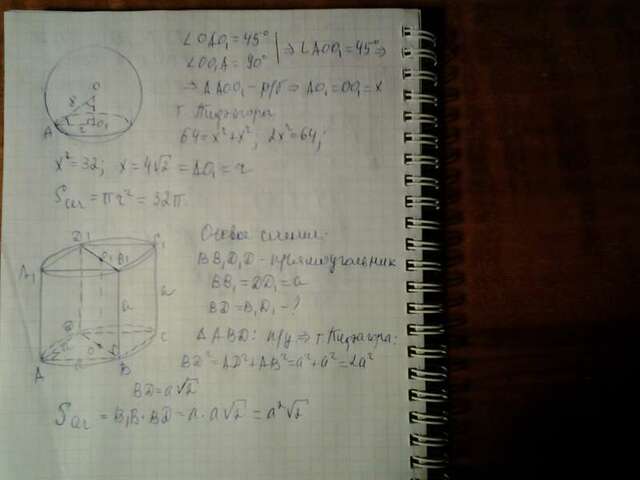 ∠OAO₁ = 45°
∠OO₁A = 90° | ⇒ ∠AOO₁ = 45° ⇒
⇒ ΔAOO₁ – р/б ⇒ AO₁ = OO₁ = x
т. Пифагора
64 = x² + x²; 2x² = 64;
x² = 32; x = 4√2 = AO₁ = r
Sсеч = πr² = 32π.
O
8
A
r
O₁
Осевое сечение:
BB₁D₁D – прямоугольник
BB₁ = DD₁ = a
BD = B₁D₁ – ?
ΔABD: п/у ⇒ т. Пифагора:
BD² = AD² + AB² = a² + a² = 2a²
BD = a√2
Sсеч = B₁B · BD = a · a√2 = a²√2
D₁
C₁
A₁
O₁
B₁
a
a
D
C
A
O
B